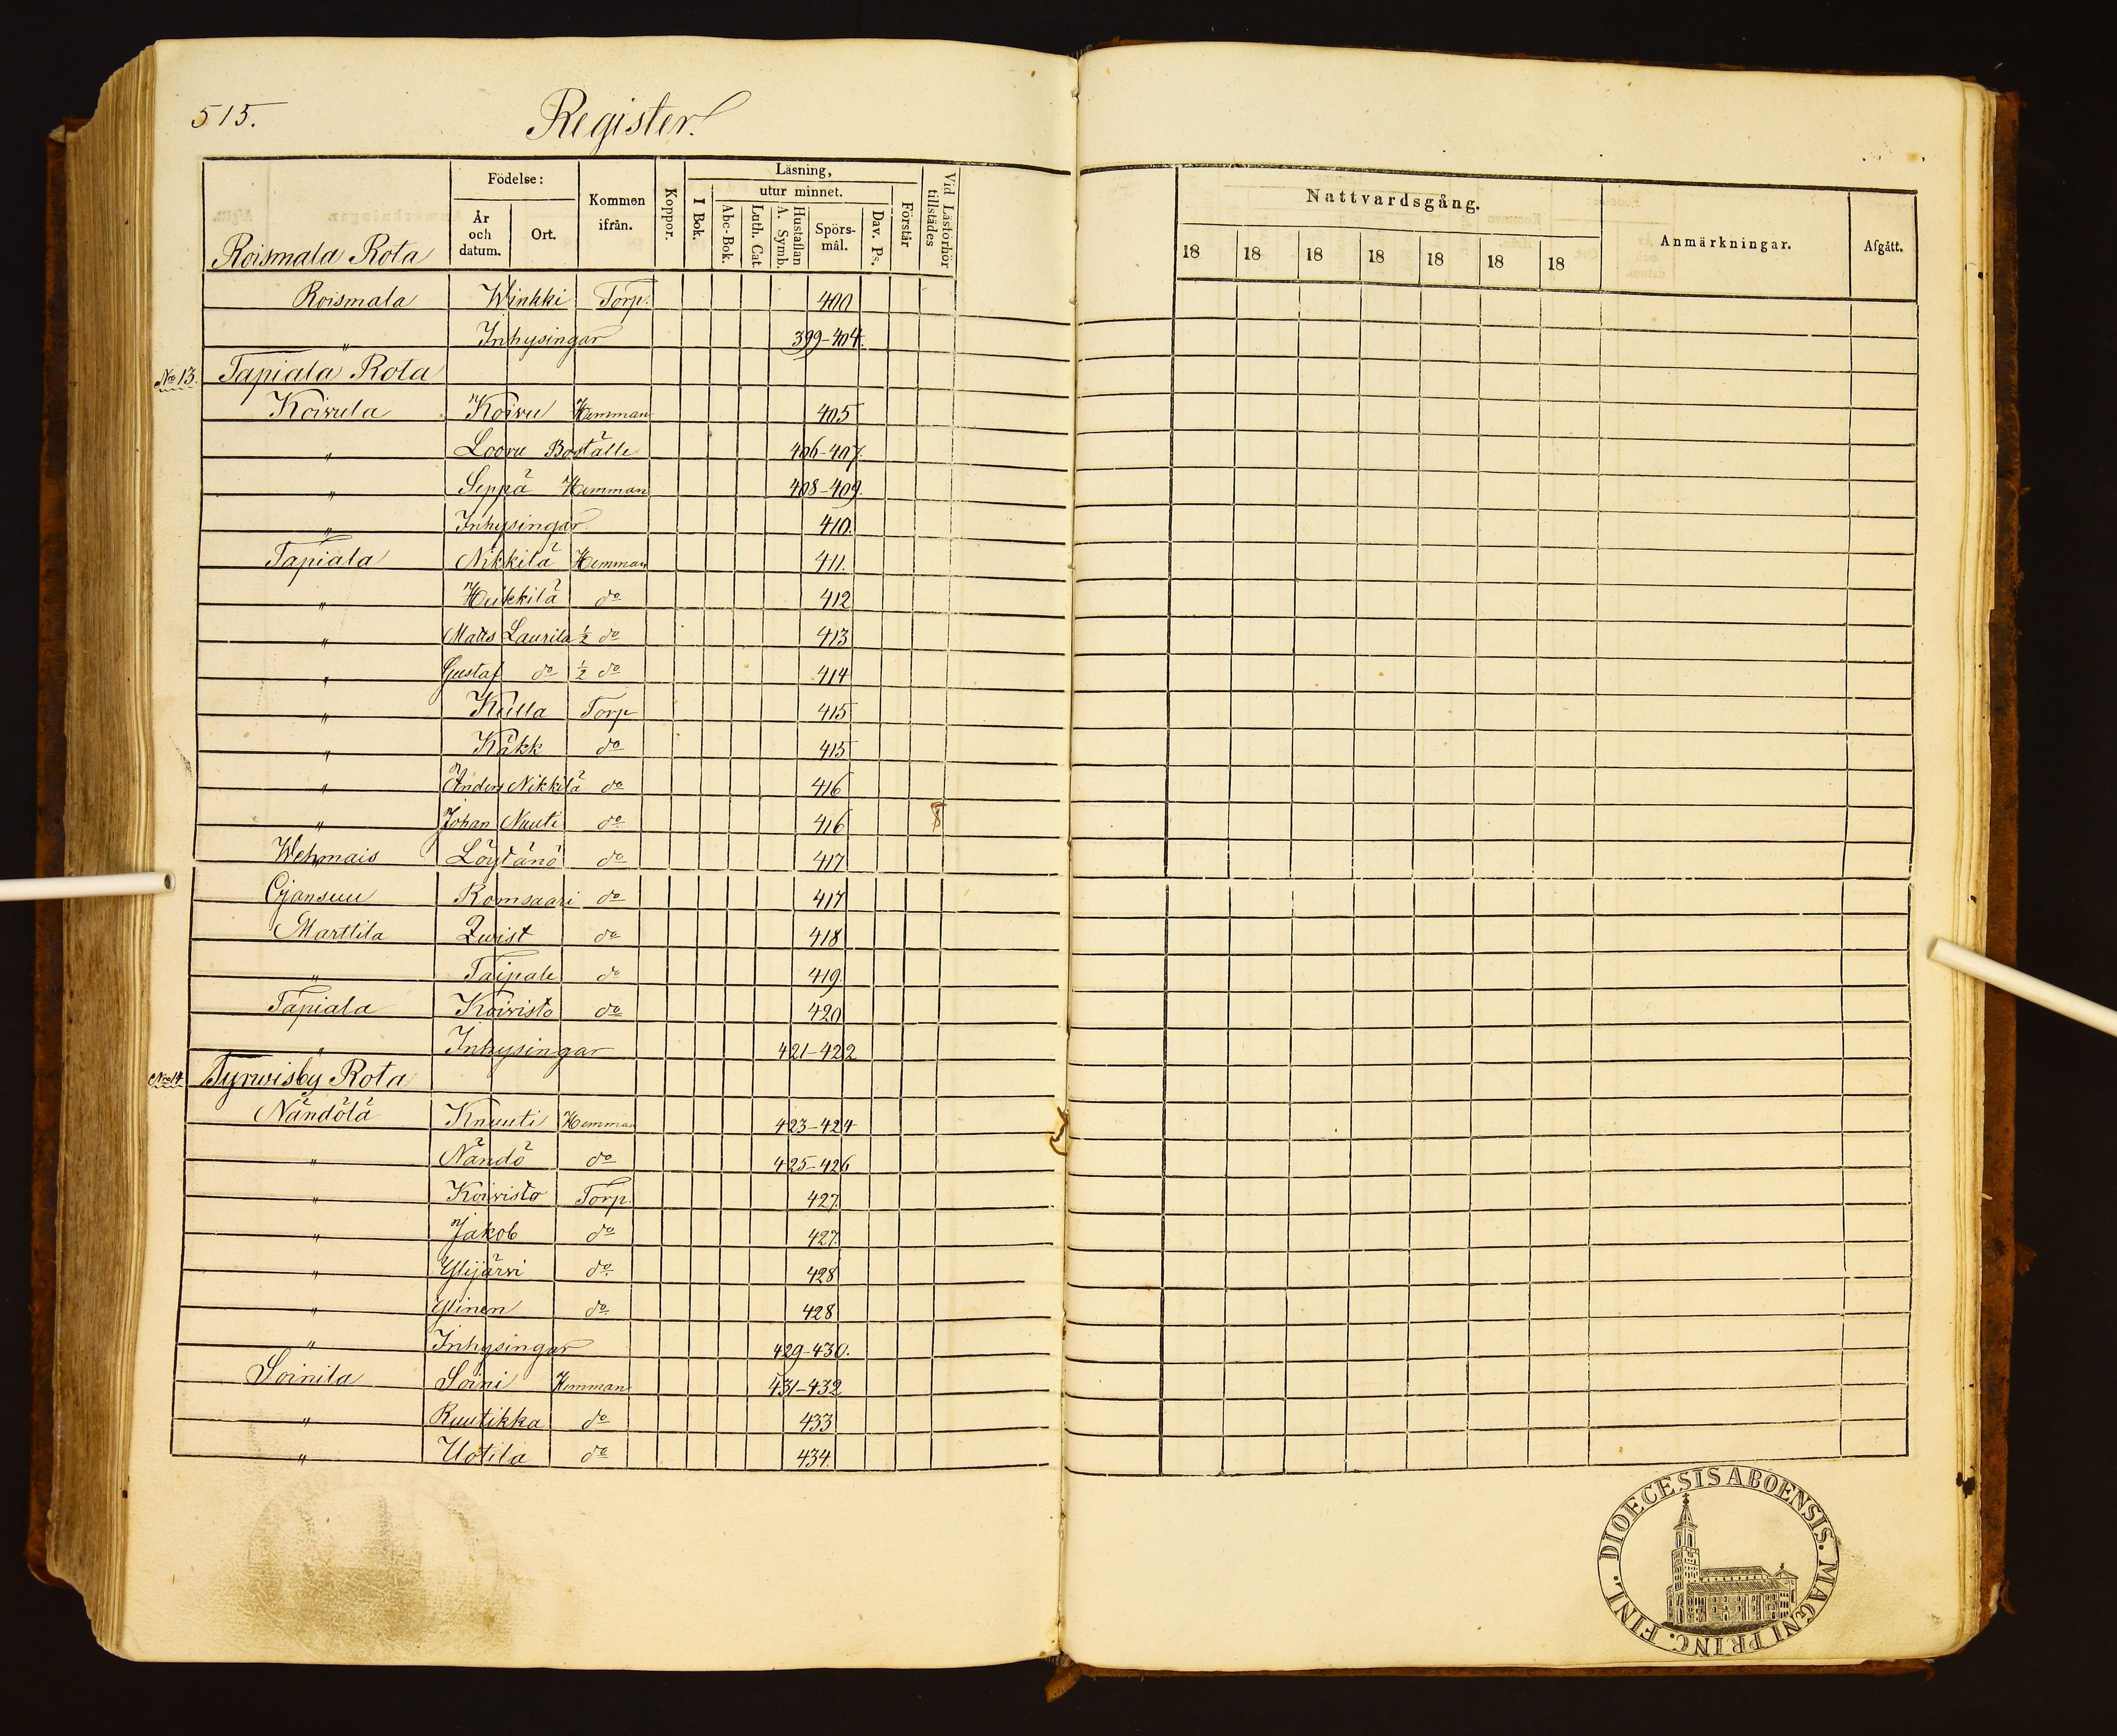 515. Register.
Födelse: Kommen ifrån. Koppor. Läsning, Vid Läsförhör tillstädes
År och datum. Ort. I Bok. utur minnet. Förstår
Abc-Bok. Luth. Cat. Hustaflan A. Symb. Spörs-mål. Dav. Ps.
Roismala Rota
Roismala Winkki Torp. 400
" Inhysingar 399-404.
No 13. Tapiala Rota
Koivula Koivu Hemman 405
" Looru Boställe 406-407.
" Seppä Hemman 408-409.
" Inhysingar 410.
Tapiala Nikkilä Hemman 411.
" Heikkilä do 412
" Matts Laurila ½ do 413
" Gustaf do ½ do 414
" Kulla Torp 415
" Käkk do 415
" Anders Nikkilä do 416
" Johan Nuuti do 416 8
Wehmais Löytänö do 417
Ojansuu Romsaari do 417
Marttila Qwist do 418
" Taipale do 419.
Tapiala Koivisto do 420
" Inhysingar 421-422
No 14. Tyrwisby Rota
Nändölä Knuuti Hemman 423-424
" Nändö do 425-426
" Koivisto Torp. 427.
" Jakob do 427.
" Ylijärvi do. 428
" Ylinen do. 428
" Inhysingar 429-430.
Soinila Soini Hemman 431-432
" Ruutikka do 433
" Uotila do 434.
Nattvardsgång. Anmärkningar. Afgått.
18 18 18 18 18 18 18
DIOECESIS ABOENSIS. MAGNI PRINC. FINL.